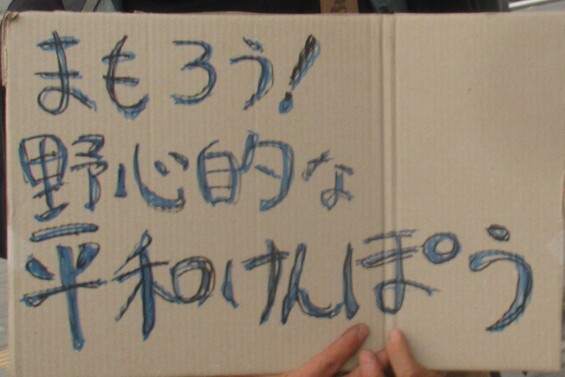 まもろう!
野心的な
平和けんぽう